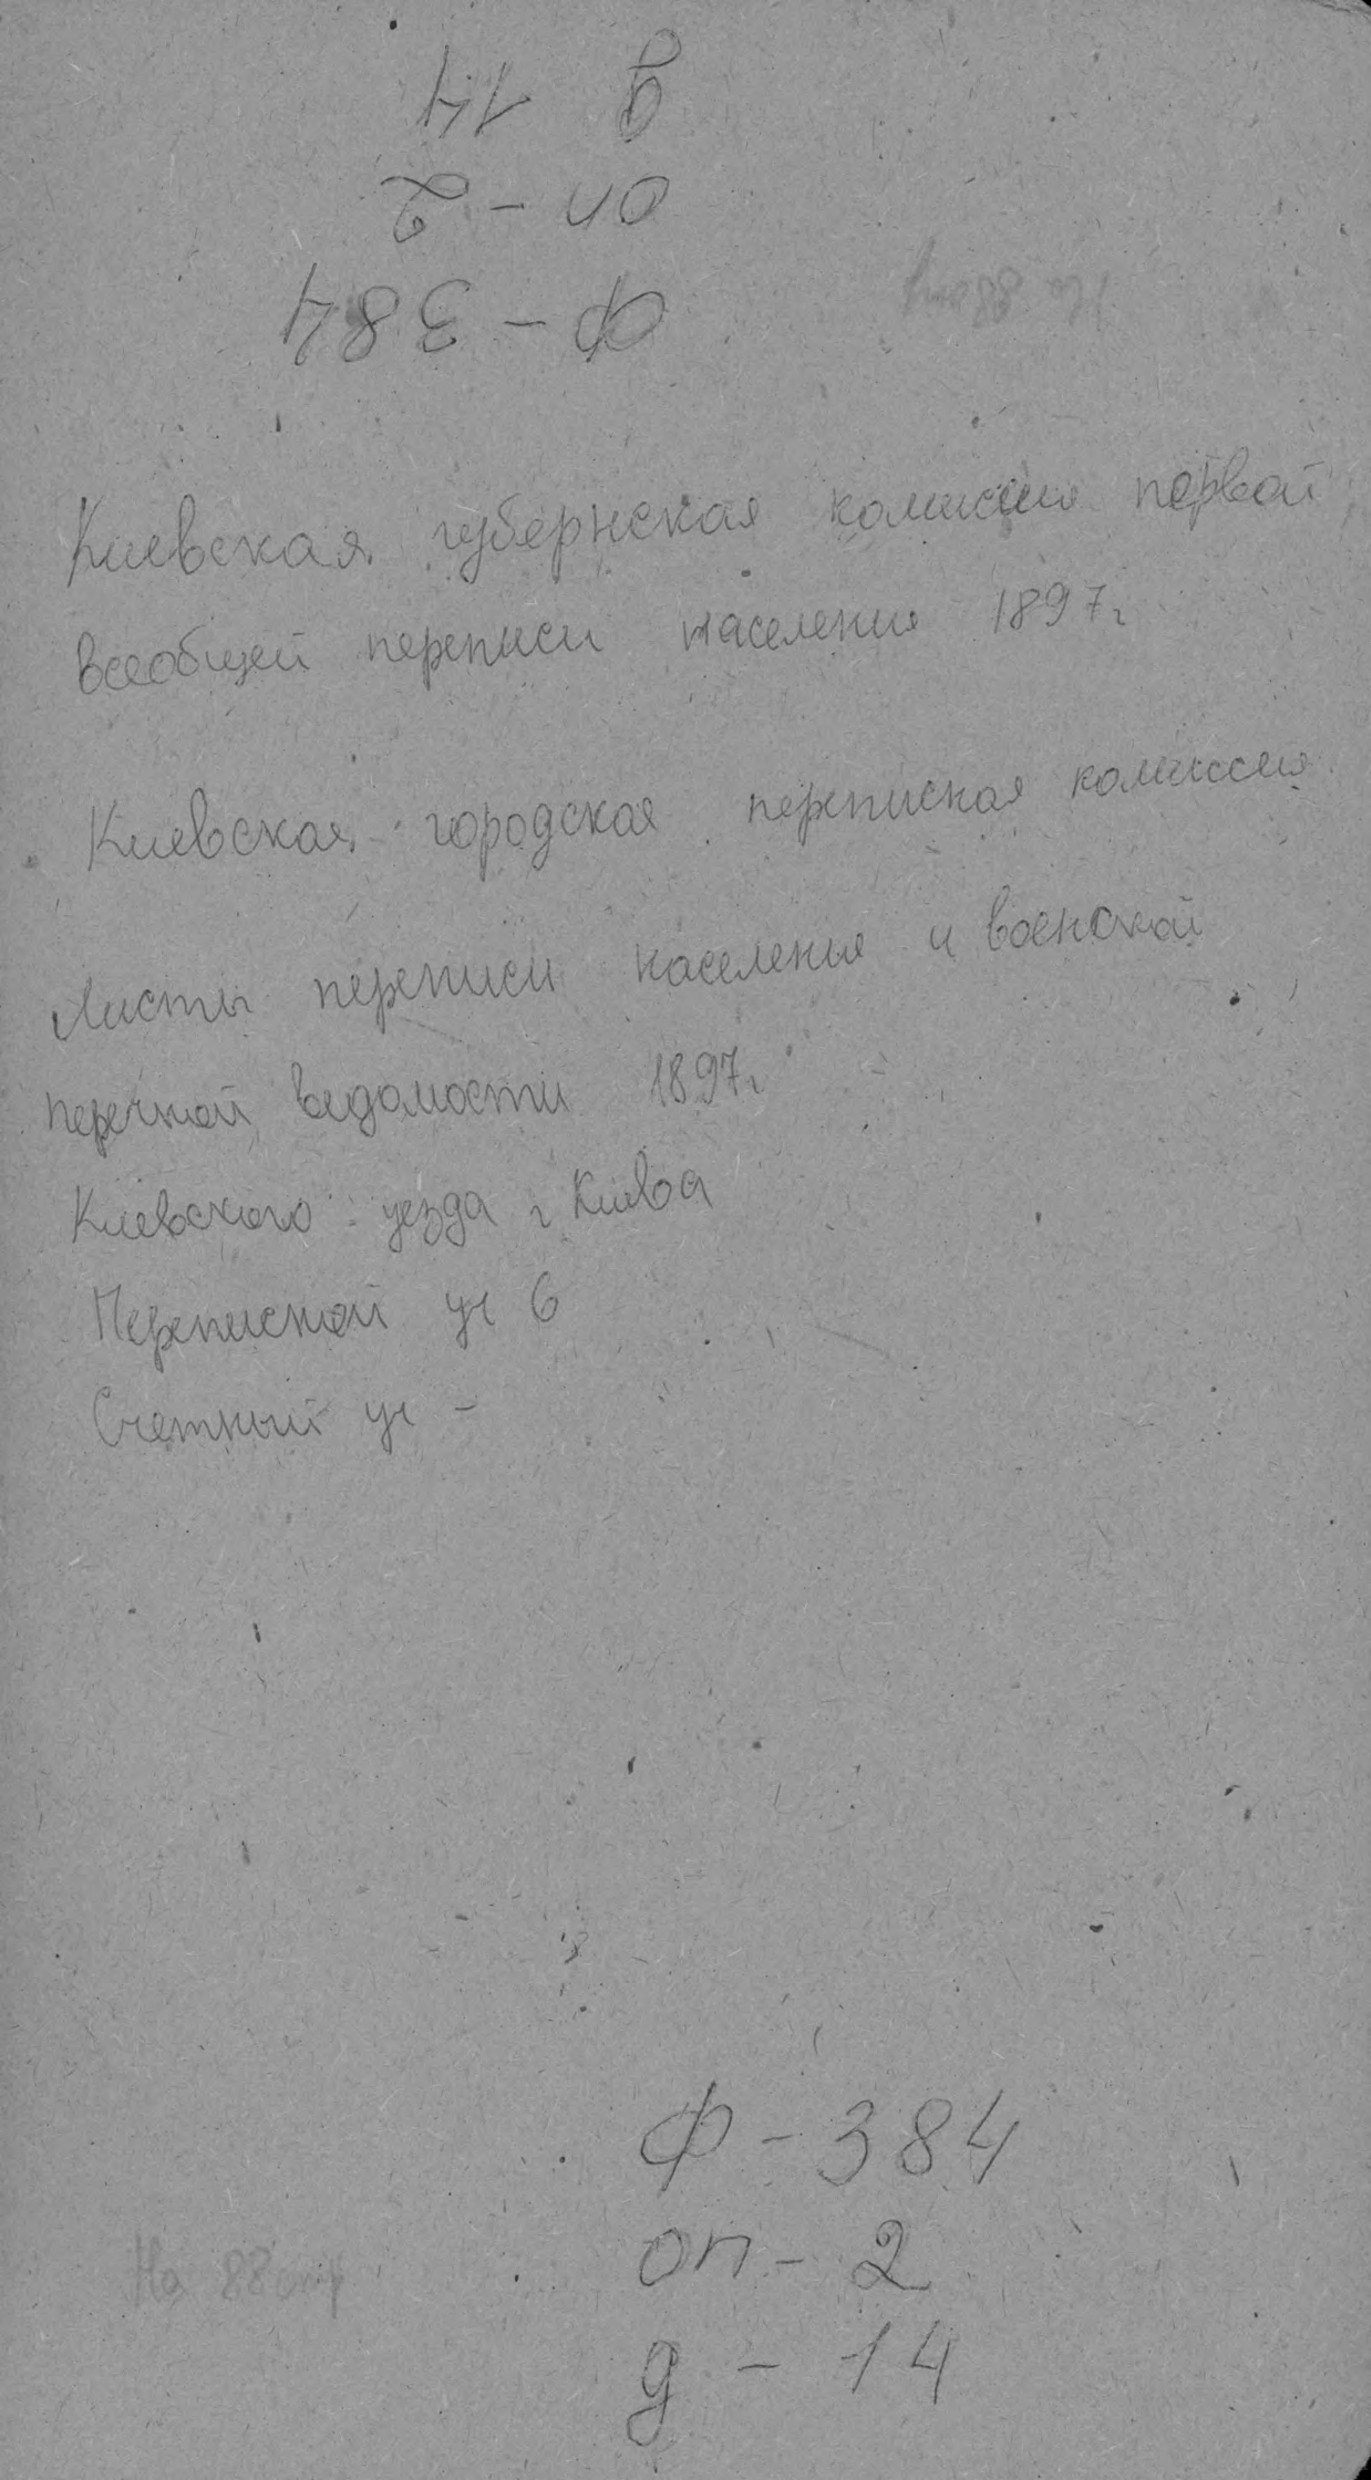 д 14
оп - 2
Ф - 384
На 88 стр
Киевская губернская комиссия первой
всеобщей переписи населения 1897 г
Киевская городская переписная комиссия
Листы переписи населения и военской
перечной ведомости 1897 г
Киевского уезда г Киева
Переписной уч 6
Счетный уч -
Ф - 384
оп - 2
На 88 стр
д - 14